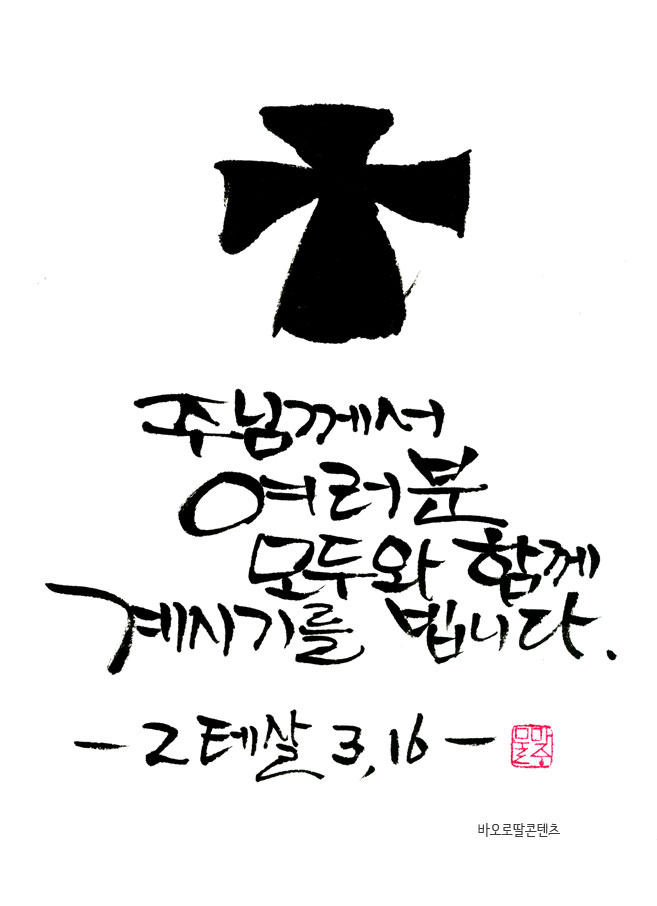 주님께서
여러분
모두와 함께
계시기를 빕니다.
- 2 테살 3,16 -
바오로딸콘텐츠